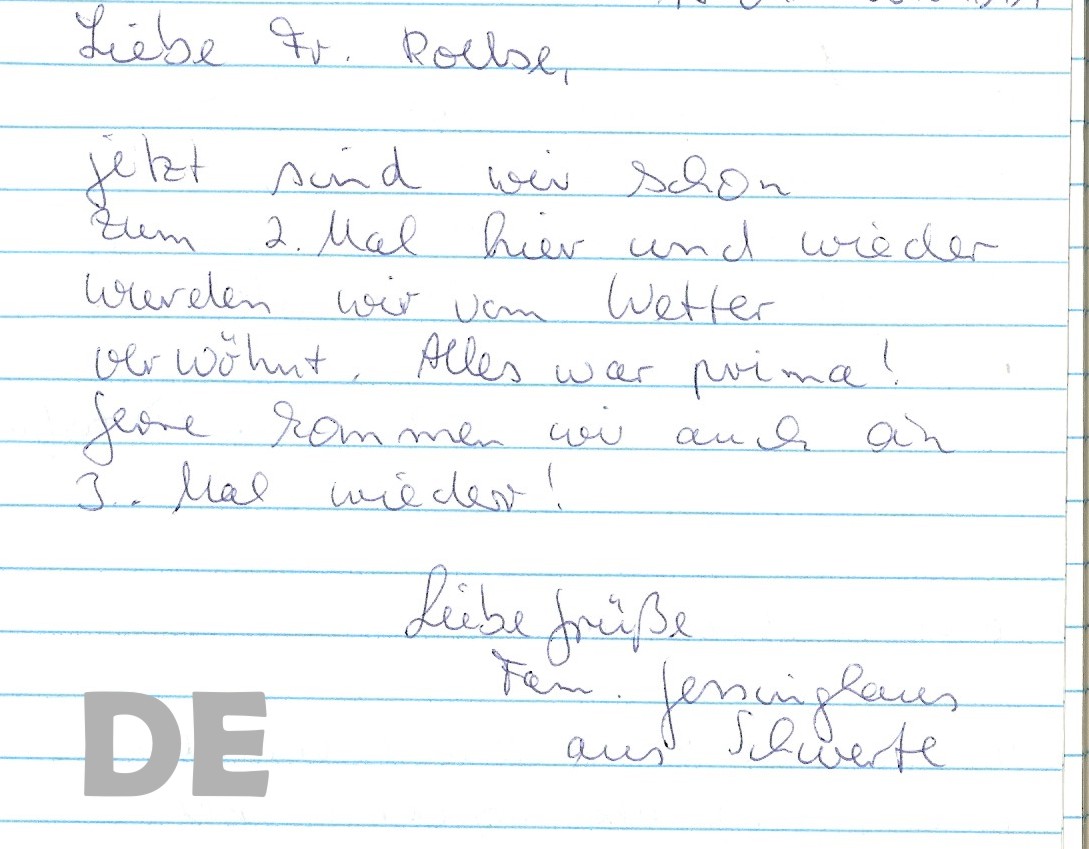 Liebe Fr. Rolbse,
jetzt sind wir schon
zum 2. Mal hier und wieder
wurden wir vom Wetter
verwöhnt. Alles war prima!
Gerne kommen wir auch ein
3.. Mal wieder!
Liebe Grüße
Fam. Gersinghaus
aus Schwerte
DE